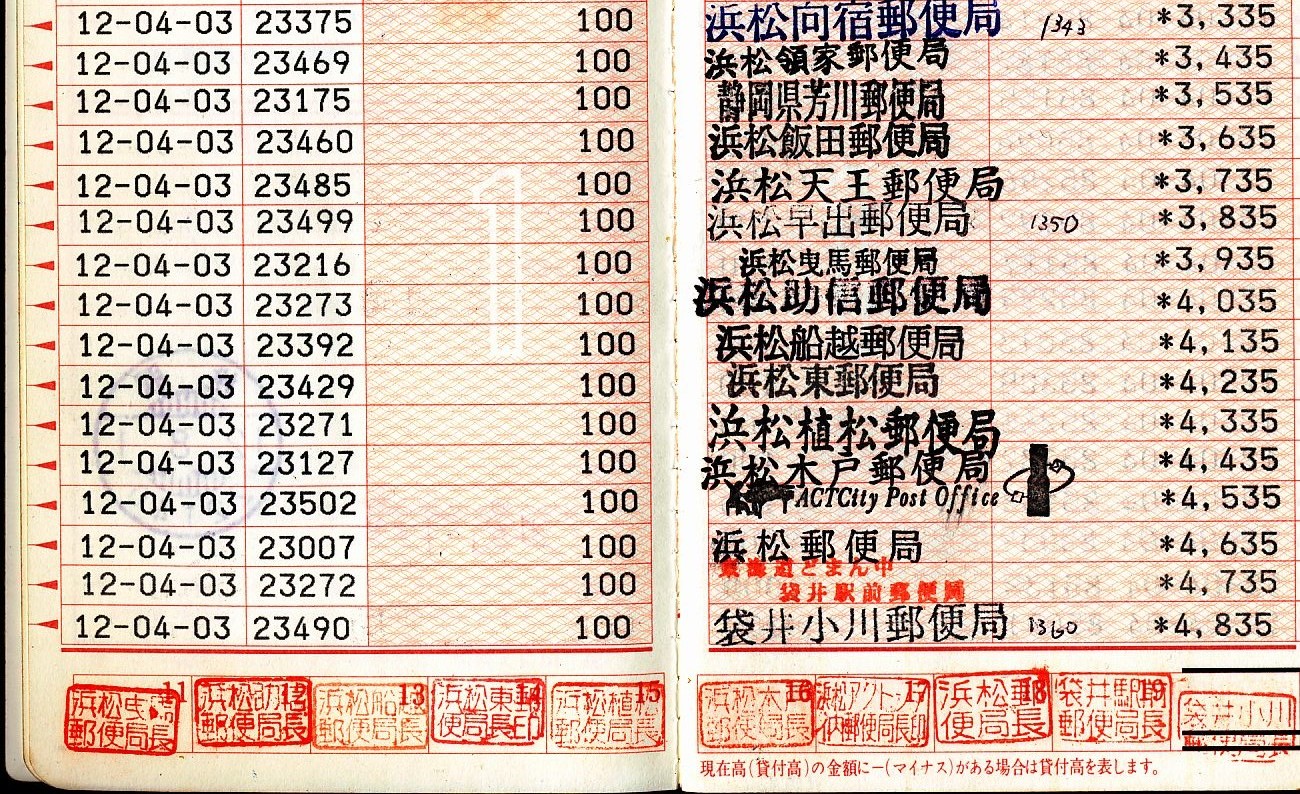 12-04-03 23375 100 浜松向宿郵便局 1343 *3,335
12-04-03 23469 100 浜松領家郵便局 *3,435
12-04-03 23175 100 静岡県芳川郵便局 *3,535
12-04-03 23460 100 浜松飯田郵便局 *3,635
12-04-03 23485 100 浜松天王郵便局 *3,735
12-04-03 23499 100 浜松早出郵便局 1350 *3,835
12-04-03 23216 100 浜松曳馬郵便局 *3,935
12-04-03 23273 100 浜松助信郵便局 *4,035
12-04-03 23392 100 浜松船越郵便局 *4,135
12-04-03 23429 100 浜松東郵便局 *4,235
12-04-03 23271 100 浜松植松郵便局 *4,335
12-04-03 23127 100 浜松木戸郵便局 *4,435
12-04-03 23502 100 ACTCity Post Office *4,535
12-04-03 23007 100 浜松郵便局 *4,635
東海道どまん中
12-04-03 23272 100 袋井駅前郵便局 *4,735
12-04-03 23490 100 袋井小川郵便局 1360 *4,835
11 12 13 14 15 16 17 18 19
浜松曳馬 浜松助信 浜松船 浜松東郵 浜松植松 浜松木 浜松アクト 浜松郵 袋井駅前 袋井小川
郵便局長 郵便局長 郵便局長 便局長印 郵便局長 郵便局長 内郵便局長印 便局長 郵便局長 郵便局長
現在高(貸付高)の金額に−(マイナス)がある場合は貸付高を表します。